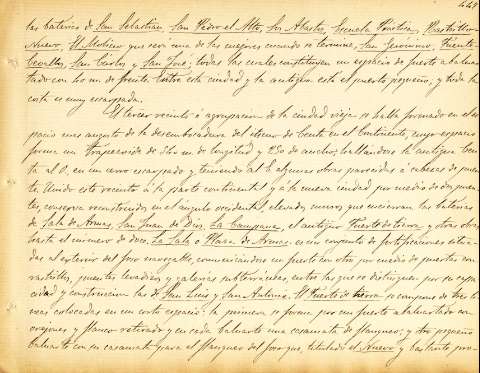 448
las baterías de San Sebastian, San Pedro el Alto, Los Abastos, Escuela Práctica, Rastrillo
Nuevo, El Molino que será una de las mejores cuando se termine, San Gerónimo, Fuente
Caballos, San Carlos y San José; todas las cuales constituyen un espacio de puerto abaluar-
tado con 40 m. de frente. Entre esta ciudad y la antigua está el puerto pequeño; y toda la
costa es muy escarpada.
El tercer recinto ó agrupacion de la ciudad vieja se halla formado en el es-
pacio mas angosto de la desembocadura del istmo de Ceuta en el Continente, cuyo espacio
forma un trapezoide de 340 m. de longitud y 230 de ancho; hallándose la antigua Ceu-
ta al O. en un cerro escarpado y teniendo al E. algunas obras parecidas á cabezas de puen-
te. Unido este recinto á la parte continental y á la nueva ciudad por medio de dos puen-
tes conserva reconstruidos, en el ángulo occidental, elevados muros que encierran las baterías
de Sala de Armas, San Juan de Dios, La Campana, el antiguo Fuerte de tierra y otras obras
hasta el número de doce. La Sala o Plaza de Armas es un conjunto de fortificaciones situa-
das al exterior del foso navegable, comunicándose un puesto con otro por medio de puertas con
rastrillos, puentes levadizos y galerías subterráneas, entre las que se distinguen por su capa-
cidad y construccion las de San Luis y San Antonio. El Fuerte de tierra se compone de tres lí-
neas colocadas en un corto espacio: la primera se forma por un puesto abaluartado con
orejones y flanco retirado y en cada baluarte una casamata de flanqueo; y otro pequeño
baluarte con su casamata para el flanqueo del foso que, titulado el Nuevo y bastante pro-